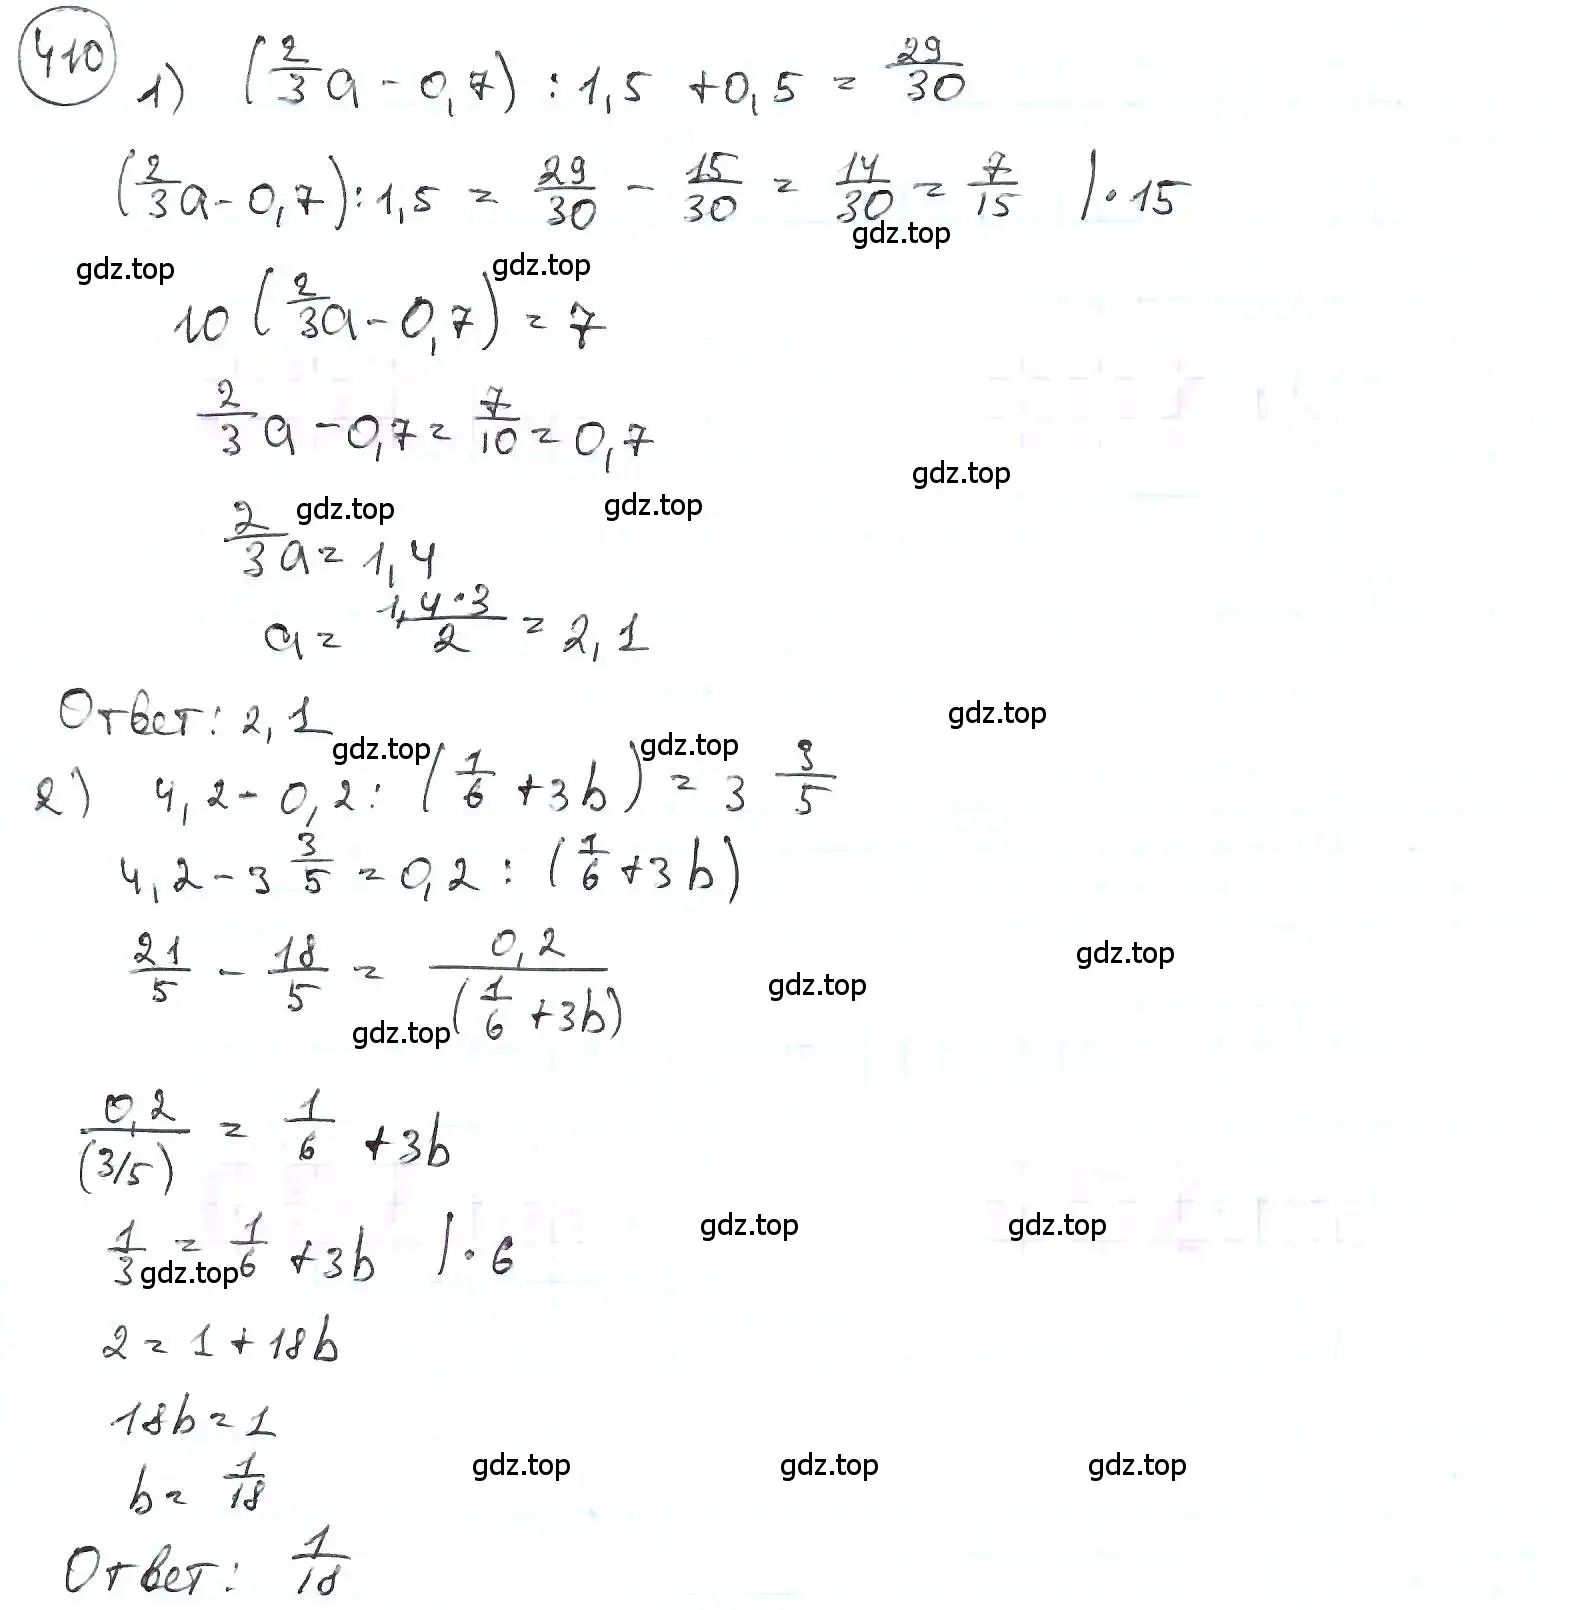 410
1) (2/3 a - 0,7) : 1,5 + 0,5 = 29/30
(2/3 a - 0,7) : 1,5 = 29/30 - 15/30 = 14/30 = 7/15 | · 15
gdz.top gdz.top gdz.top
10 (2/3 a - 0,7) = 7
2/3 a - 0,7 = 7/10 = 0,7
gdz.top gdz.top gdz.top
2/3 a = 1,4
a = 1,4 · 3/2 = 2,1
Ответ: 2,1
gdz.top gdz.top gdz.top
2) 4,2 - 0,2 : (1/6 + 3b) = 3 3/5
4,2 - 3 3/5 = 0,2 : (1/6 + 3b)
21/5 - 18/5 = 0,2/(1/6 + 3b)
gdz.top gdz.top gdz.top
0,2/(3/5) = 1/6 + 3b
1/3 = 1/6 + 3b | · 6
gdz.top gdz.top gdz.top
2 = 1 + 18b
18b = 1
b = 1/18
gdz.top gdz.top gdz.top
Ответ: 1/18